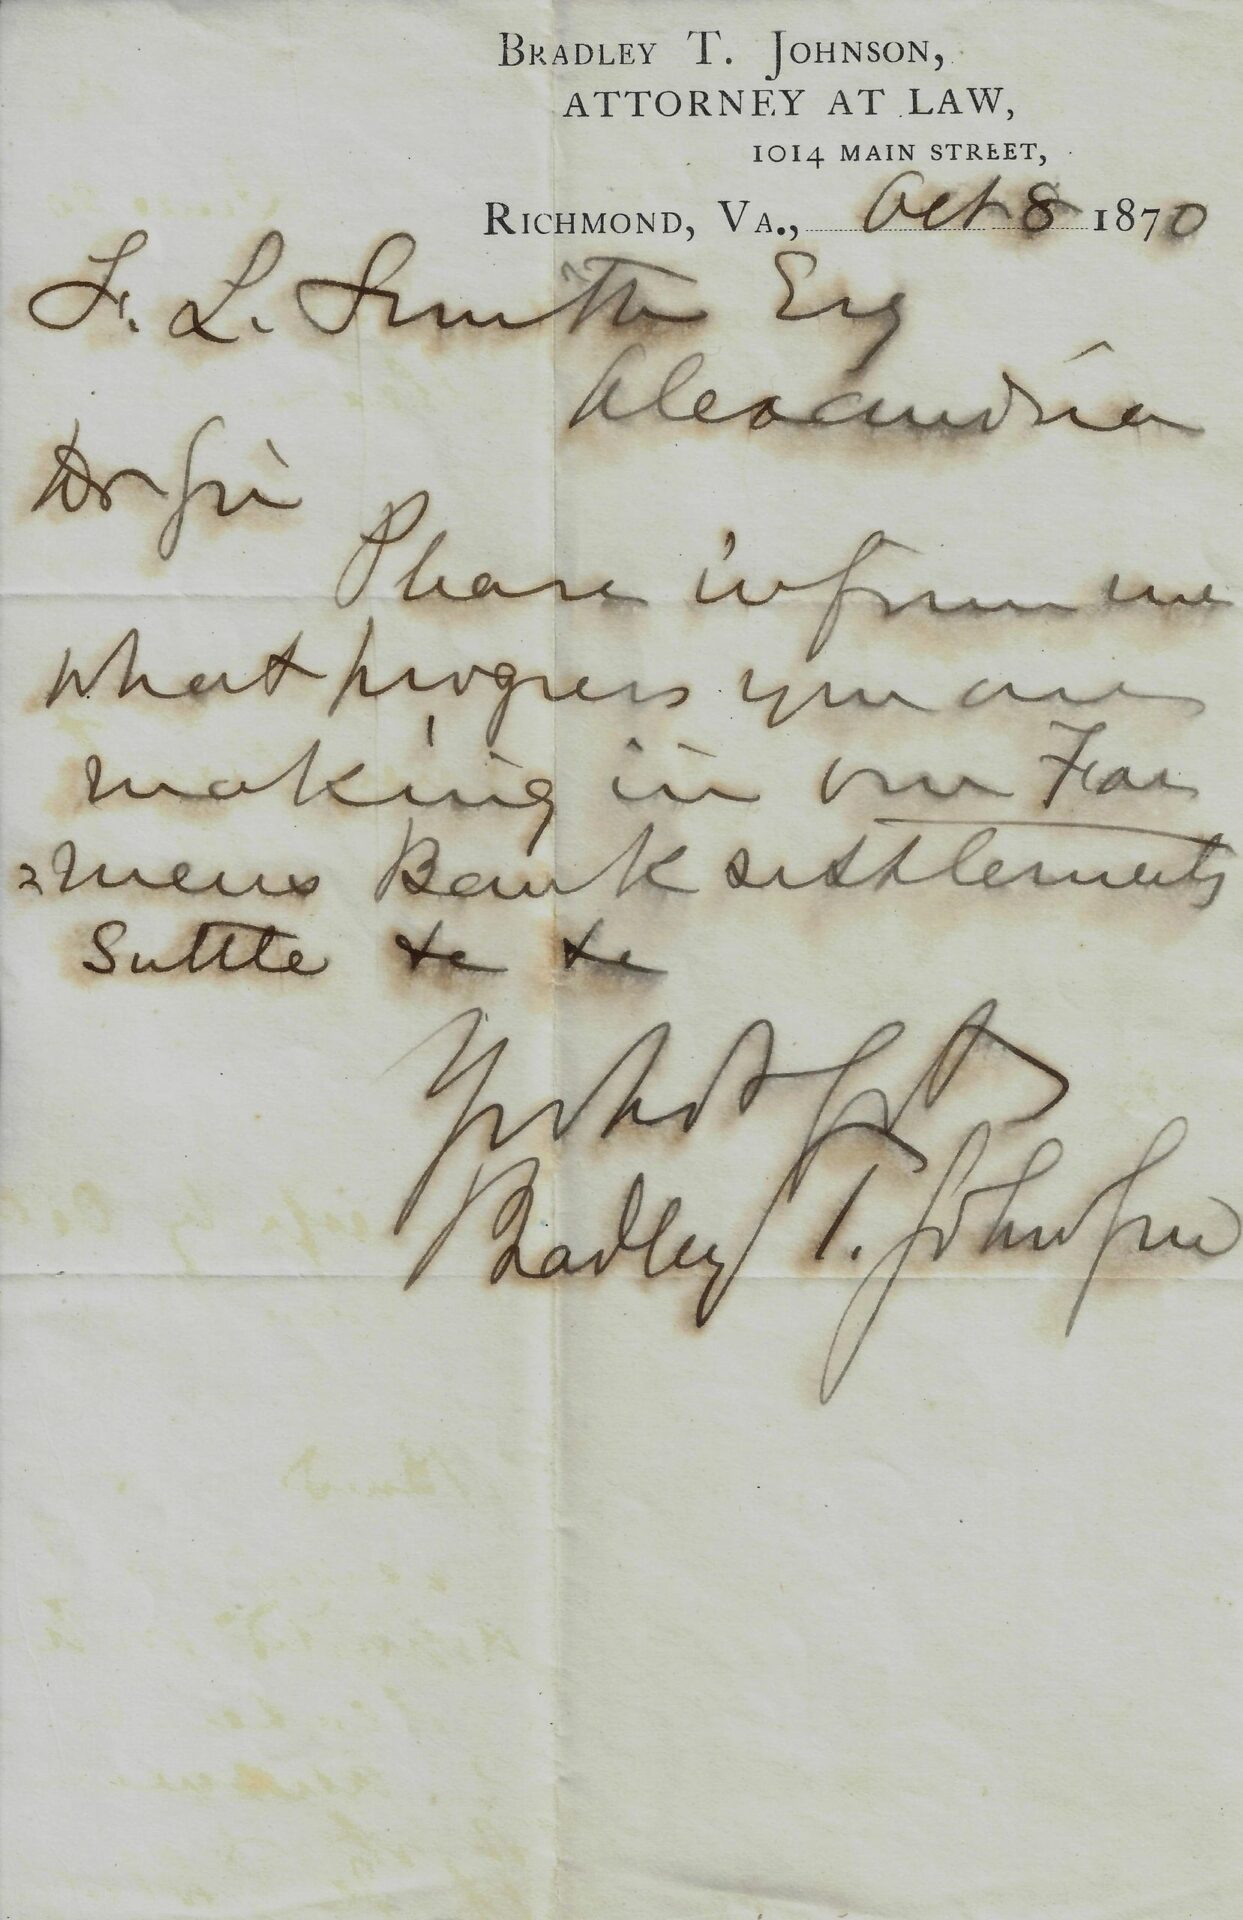 BRADLEY T. JOHNSON,
ATTORNEY AT LAW,
1014 MAIN STREET,
RICHMOND, VA., Oct 8 1870
F. L. Smith Esq
Alexandria
Dr Sir
Please inform me
what progress you are
making in our Far
=mers Bank settlements
Suttle &c &c
Yr obdt Svt
Bradley T. Johnson